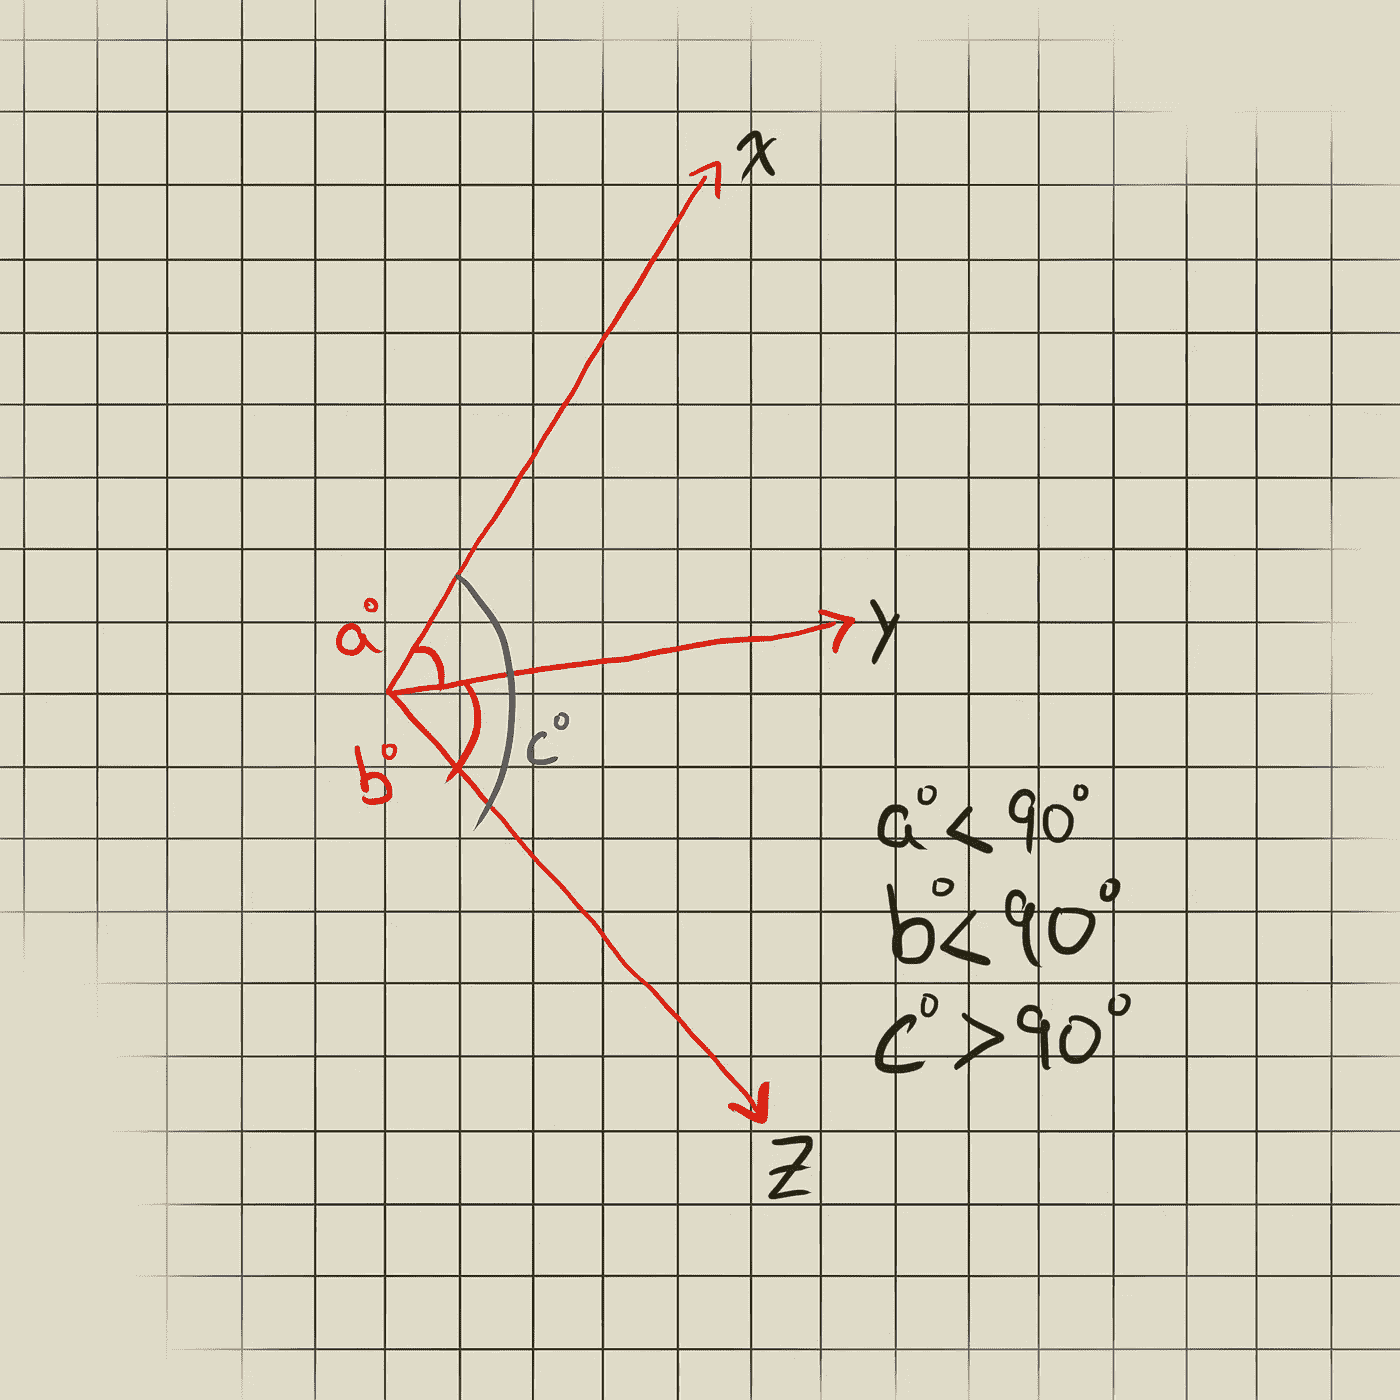 x
a°
y
c°
b°
a° < 90°
b° < 90°
c° > 90°
z